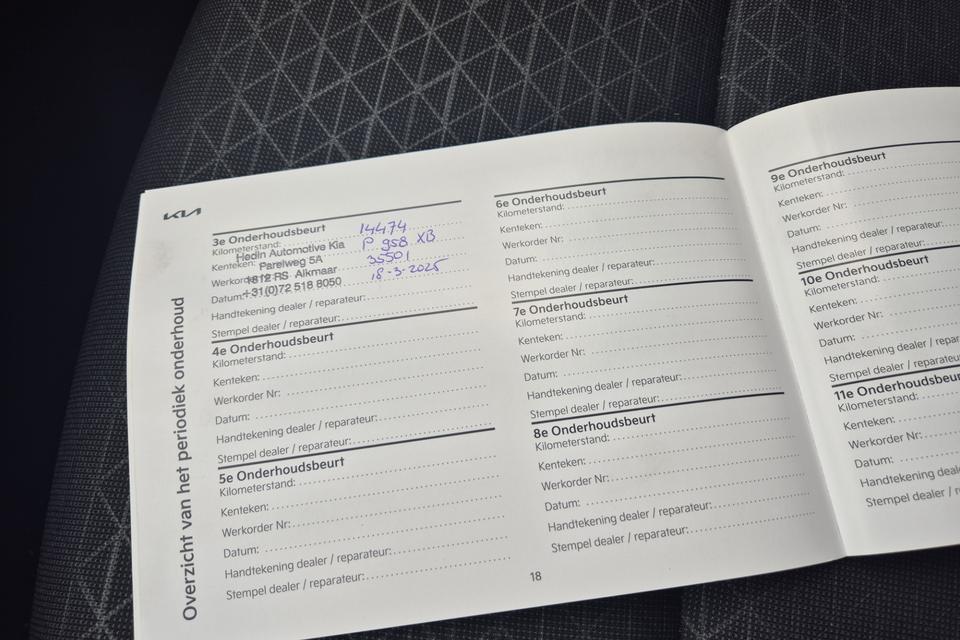 KIA
Overzicht van het periodiek onderhoud
3e Onderhoudsbeurt
Kilometerstand: 14474
Kenteken: P 958 XB
Werkorder Nr: 35501
Datum: 18-3-2025
Hedin Automotive Kia
Parelweg 5A
1812 RS Alkmaar
+31(0)72 518 8050
Handtekening dealer / reparateur:
Stempel dealer / reparateur:
4e Onderhoudsbeurt
Kilometerstand:
Kenteken:
Werkorder Nr:
Datum:
Handtekening dealer / reparateur:
Stempel dealer / reparateur:
5e Onderhoudsbeurt
Kilometerstand:
Kenteken:
Werkorder Nr:
Datum:
Handtekening dealer / reparateur:
Stempel dealer / reparateur:
6e Onderhoudsbeurt
Kilometerstand:
Kenteken:
Werkorder Nr:
Datum:
Handtekening dealer / reparateur:
Stempel dealer / reparateur:
7e Onderhoudsbeurt
Kilometerstand:
Kenteken:
Werkorder Nr:
Datum:
Handtekening dealer / reparateur:
Stempel dealer / reparateur:
8e Onderhoudsbeurt
Kilometerstand:
Kenteken:
Werkorder Nr:
Datum:
Handtekening dealer / reparateur:
Stempel dealer / reparateur:
18
9e Onderhoudsbeurt
Kilometerstand:
Kenteken:
Werkorder Nr:
Datum:
Handtekening dealer / reparateur:
Stempel dealer / reparateur:
10e Onderhoudsbeurt
Kilometerstand:
Kenteken:
Werkorder Nr:
Datum:
Handtekening dealer / repar
Stempel dealer / reparateu
11e Onderhoudsbeur
Kilometerstand:
Kenteken:
Werkorder Nr:
Datum:
Handtekening deal
Stempel dealer / r